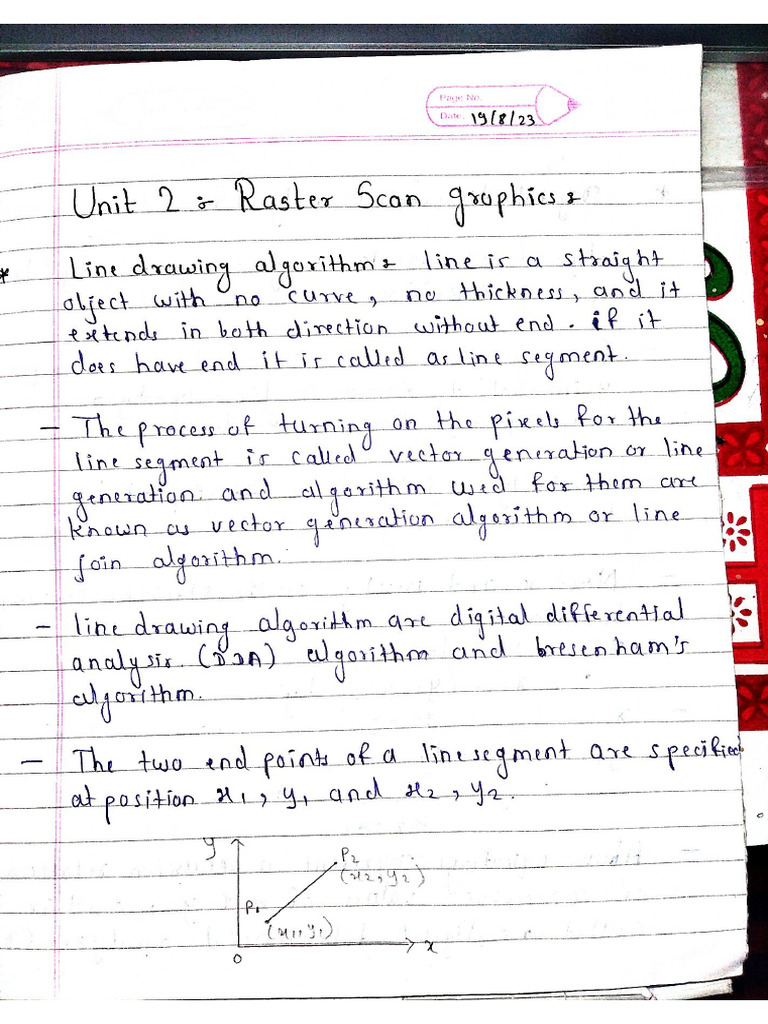 Page No.
Date: 19/8/23
Unit 2 :- Raster Scan graphics :
* Line drawing algorithm : line is a straight
object with no curve, no thickness, and it
extends in both direction without end. if it
does have end it is called as line segment.
- The process of turning on the pixels for the
line segment is called vector generation or line
generation and algorithm used for them are
known as vector generation algorithm or line
join algorithm.
- line drawing algorithm are digital differential
analysis. (DDA) algorithm and bresenham's
algorithm.
- The two end points of a line segment are specified
at position x1, y1 and x2, y2.
y
P2
(x2, y2)
P1
(x1, y1)
x
0